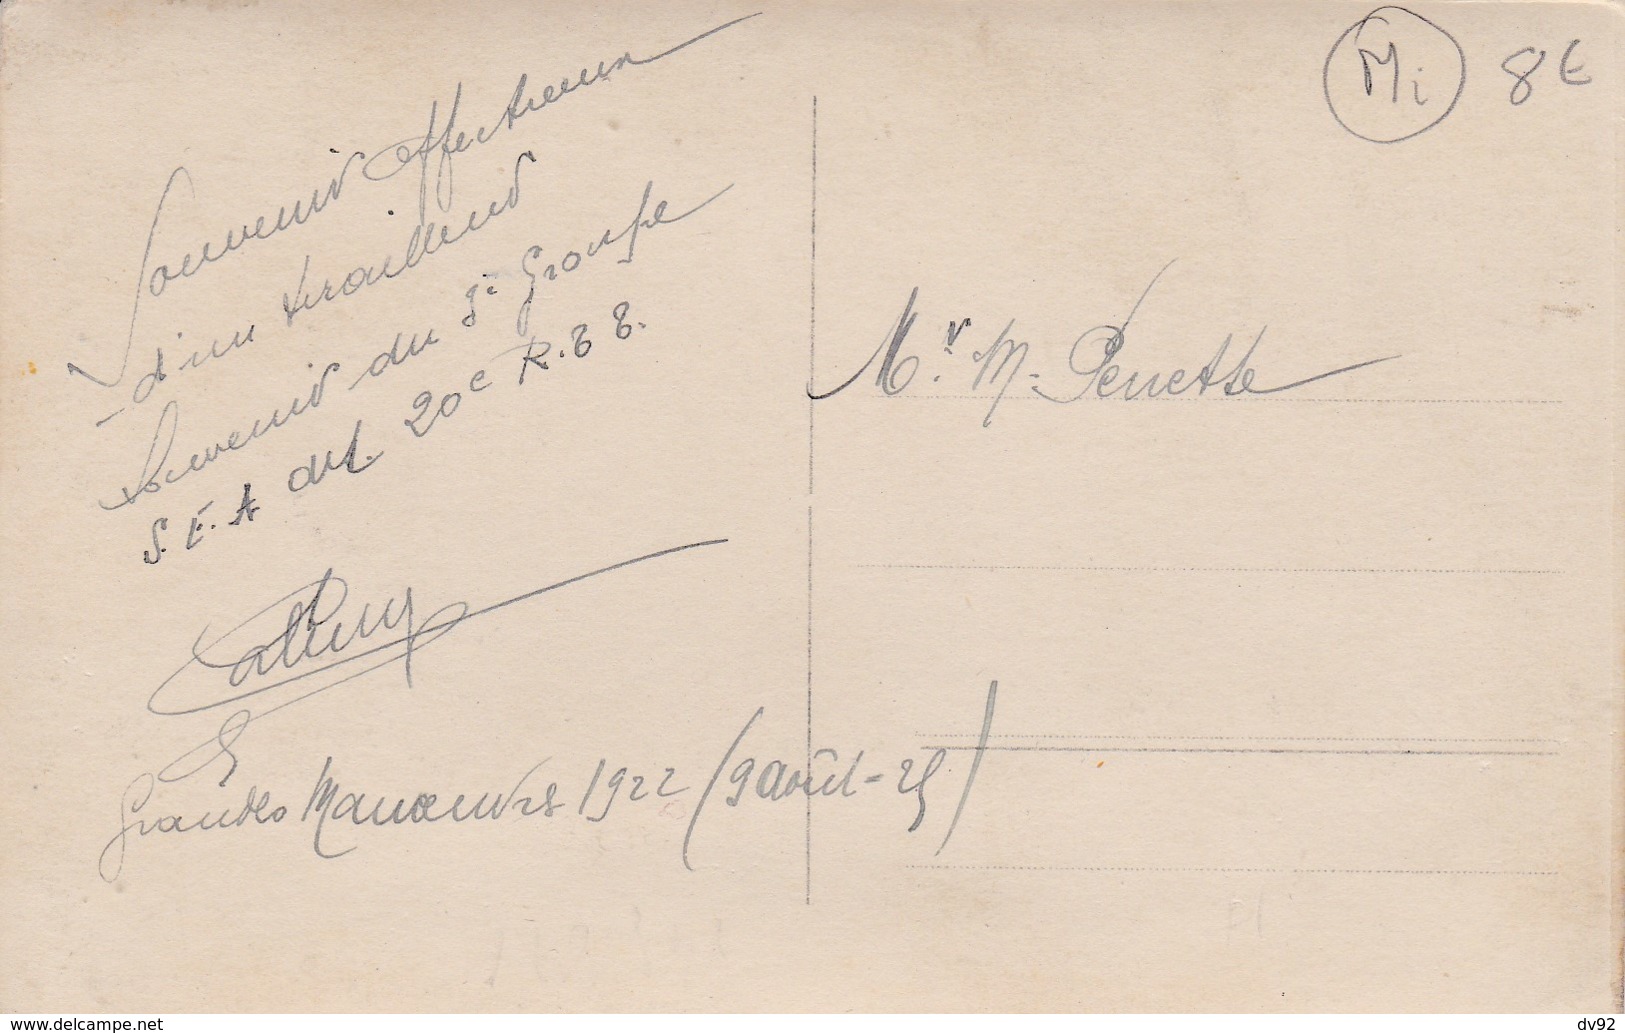 Souvenir affectueux
d'un tirailleur
Souvenir du 3e Groupe
S.E.A du 20e R.T.T.
Grandes Manoeuvres 1922 (9 Août - 25)
Mr. M. Penette
Mi
8€
www.delcampe.net
dv92